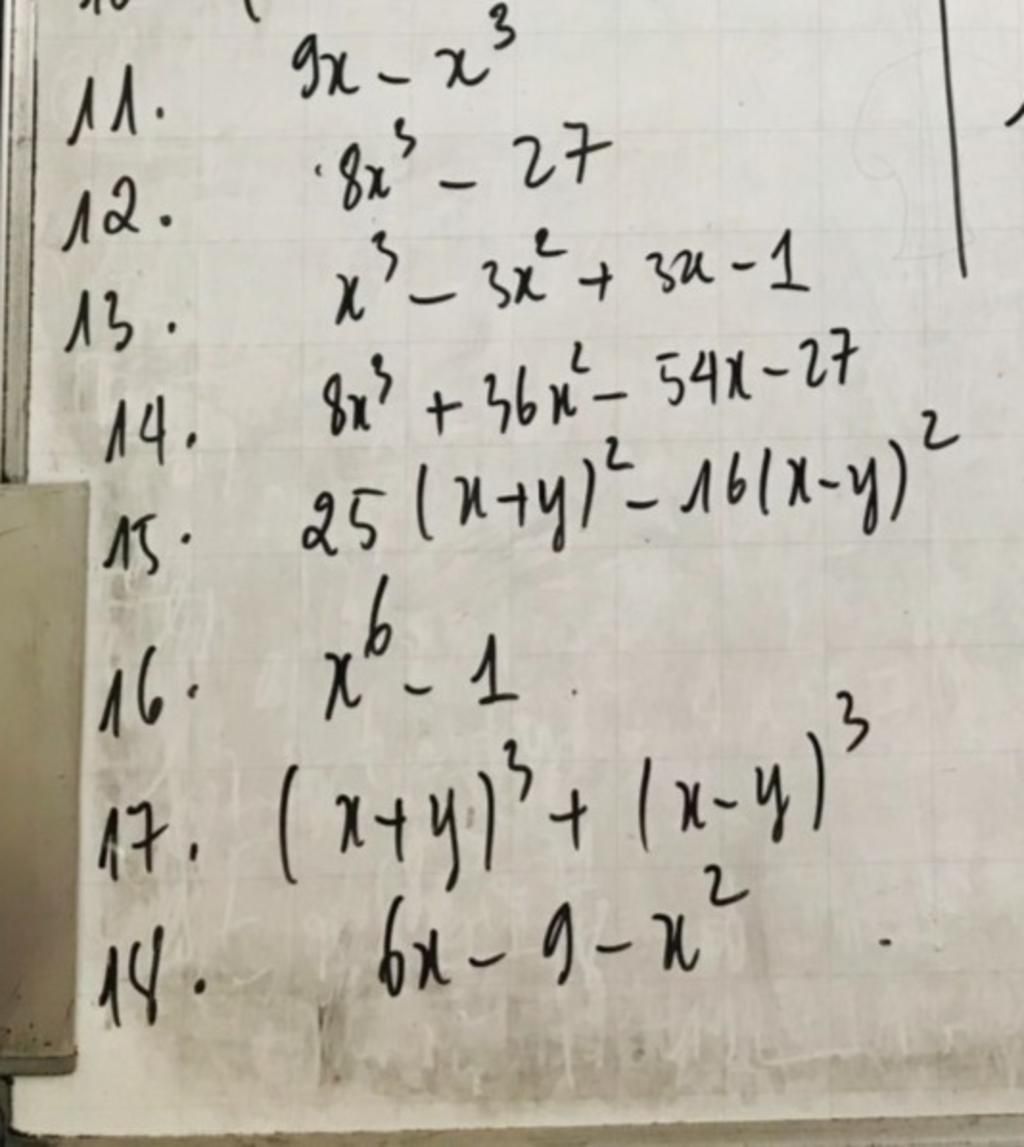 11. 9x - x³
12. 8x³ - 27
13. x³ - 3x² + 3x - 1
14. 8x³ + 36x² - 54x - 27
15. 25(x+y)² - 16(x-y)²
16. x⁶ - 1
17. (x+y)³ + (x-y)³
18. 6x - 9 - x²